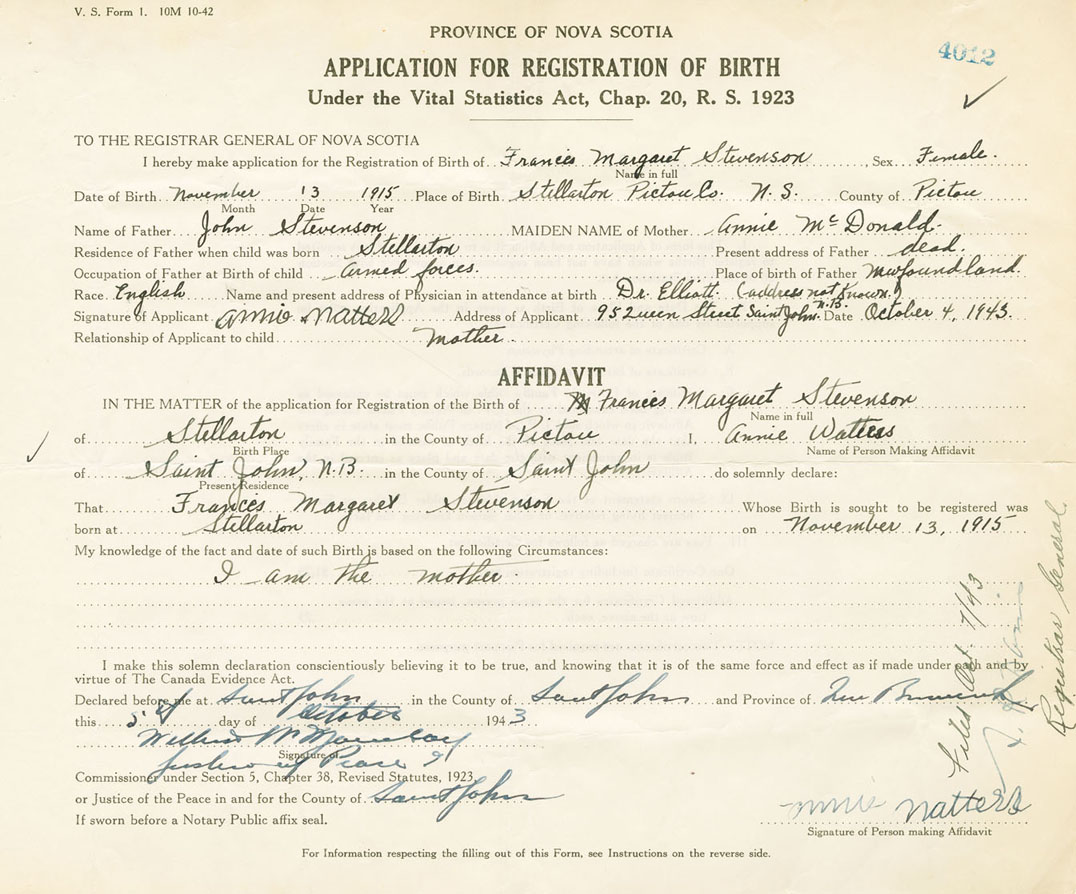 V. S. Form 1. 10M 10-42
PROVINCE OF NOVA SCOTIA
4012
APPLICATION FOR REGISTRATION OF BIRTH
Under the Vital Statistics Act, Chap. 20, R. S. 1923
TO THE REGISTRAR GENERAL OF NOVA SCOTIA
I hereby make application for the Registration of Birth of Frances Margaret Stevenson, Sex Female.
Name in full
Date of Birth November 13 1915 Place of Birth Stellarton Pictou Co. N. S. County of Pictou
Month Date Year
Name of Father John Stevenson MAIDEN NAME of Mother Annie McDonald.
Residence of Father when child was born Stellarton Present address of Father dead.
Occupation of Father at Birth of child Armed forces. Place of birth of Father Newfoundland.
Race English Name and present address of Physician in attendance at birth Dr. Elliott. (address not known.)
Signature of Applicant Annie Watters Address of Applicant 95 Queen Street Saint John. N.B. Date October 4, 1943.
Relationship of Applicant to child Mother.
AFFIDAVIT
IN THE MATTER of the application for Registration of the Birth of Frances Margaret Stevenson
Name in full
of Stellarton in the County of Pictou I, Annie Watters
Birth Place Name of Person Making Affidavit
of Saint John, N.B. in the County of Saint John do solemnly declare:
Present Residence
That Frances Margaret Stevenson Whose Birth is sought to be registered was
born at Stellarton on November 13, 1915
My knowledge of the fact and date of such Birth is based on the following Circumstances:
I am the mother.
I make this solemn declaration conscientiously believing it to be true, and knowing that it is of the same force and effect as if made under oath and by
virtue of The Canada Evidence Act.
Declared before me at Saint John in the County of Saint John and Province of New Brunswick
this 5 day of October 1943
Signature of
Justice of Peace
Commissioner under Section 5, Chapter 38, Revised Statutes, 1923
or Justice of the Peace in and for the County of Saint John
If sworn before a Notary Public affix seal.
Annie Watters
Signature of Person making Affidavit
For Information respecting the filling out of this Form, see Instructions on the reverse side.
Filed Oct. 7/43
Registrar General